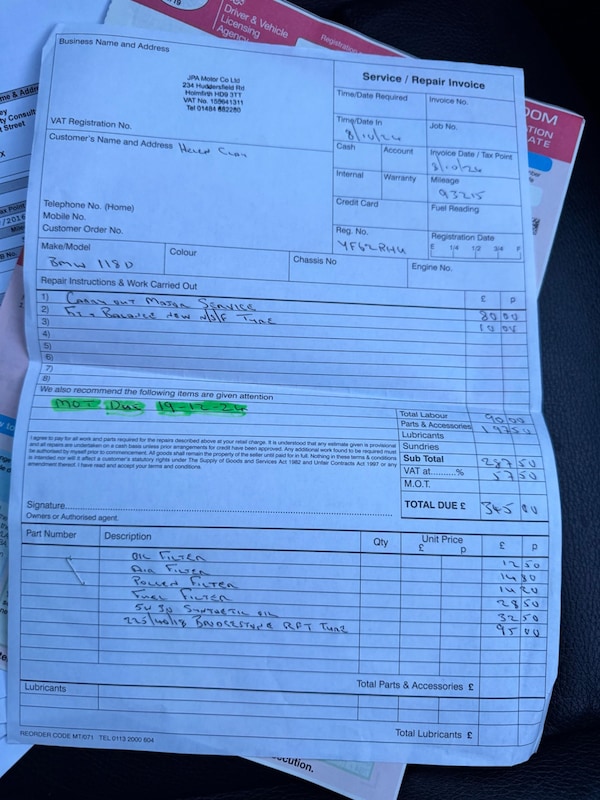 Driver & Vehicle
Licensing
Agency
Registration
Business Name and Address
Service / Repair Invoice
JPA Motor Co Ltd
234 Huddersfield Rd
Holmfirth HD9 3TT
VAT No. 150641311
Tel 01484 682260
Time/Date Required
Invoice No.
VAT Registration No.
Time/Date In
8/10/24
Job No.
Customer's Name and Address
Cash
Account
Invoice Date / Tax Point
8/10/24
Internal
Warranty
Mileage
93215
Telephone No. (Home)
Mobile No.
Customer Order No.
Credit Card
Fuel Reading
Reg. No.
Registration Date
E 1/4 1/2 3/4 F
Make/Model
BMW 118D
Colour
Chassis No
Engine No.
Repair Instructions & Work Carried Out £ p
1) CARRY OUT MAJOR SERVICE 80 00
2) FIT + BALANCE NEW N/S/F TYRE 10 00
3)
4)
5)
6)
7)
8)
We also recommend the following items are given attention
MOT DUE 19-12-24
Total Labour 90 00
Parts & Accessories 197 50
Lubricants
Sundries
Sub Total 287 50
VAT at..........% 57 50
M.O.T.
TOTAL DUE £ 345 00
I agree to pay for all work and parts required for the repairs described above at your retail charge. It is understood that any estimate given is provisional
and all repairs are undertaken on a cash basis unless prior arrangements for credit have been approved. Any additional work found to be required must
be authorised by myself prior to commencement. All goods shall remain the property of the seller until paid for in full. Nothing in these terms & conditions
is intended nor will it affect a customer's statutory rights under The Supply of Goods and Services Act 1982 and Unfair Contracts Act 1997 or any
amendment thereof. I have read and accept your terms and conditions.
Signature
Owners or Authorised agent.
Part Number Description Qty Unit Price £ p £ p
OIL FILTER 12 50
AIR FILTER 14 80
POLLEN FILTER 14 20
FUEL FILTER 28 50
5W30 SYNTHETIC OIL 32 50
225/40/18 BRIDGESTONE RFT TYRE 95 00
Total Parts & Accessories £
Lubricants
Total Lubricants £
REORDER CODE MT/071 TEL 0113 2000 604